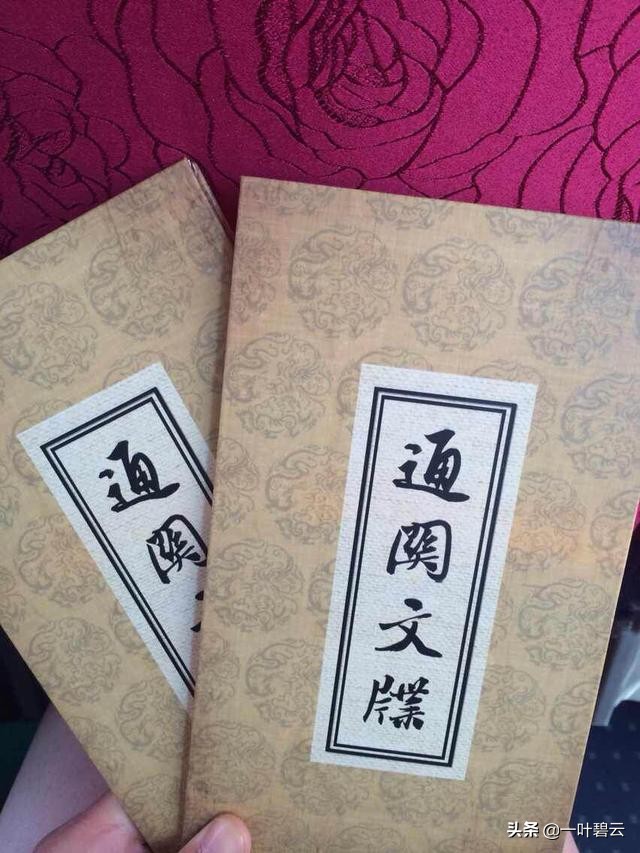 通關文牒
通關文
头条 @一叶碧云